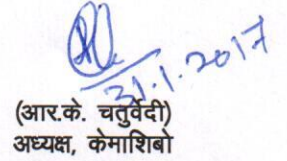 31.1.2017
(आर.के. चतुर्वेदी)
अध्यक्ष, केमाशिबो